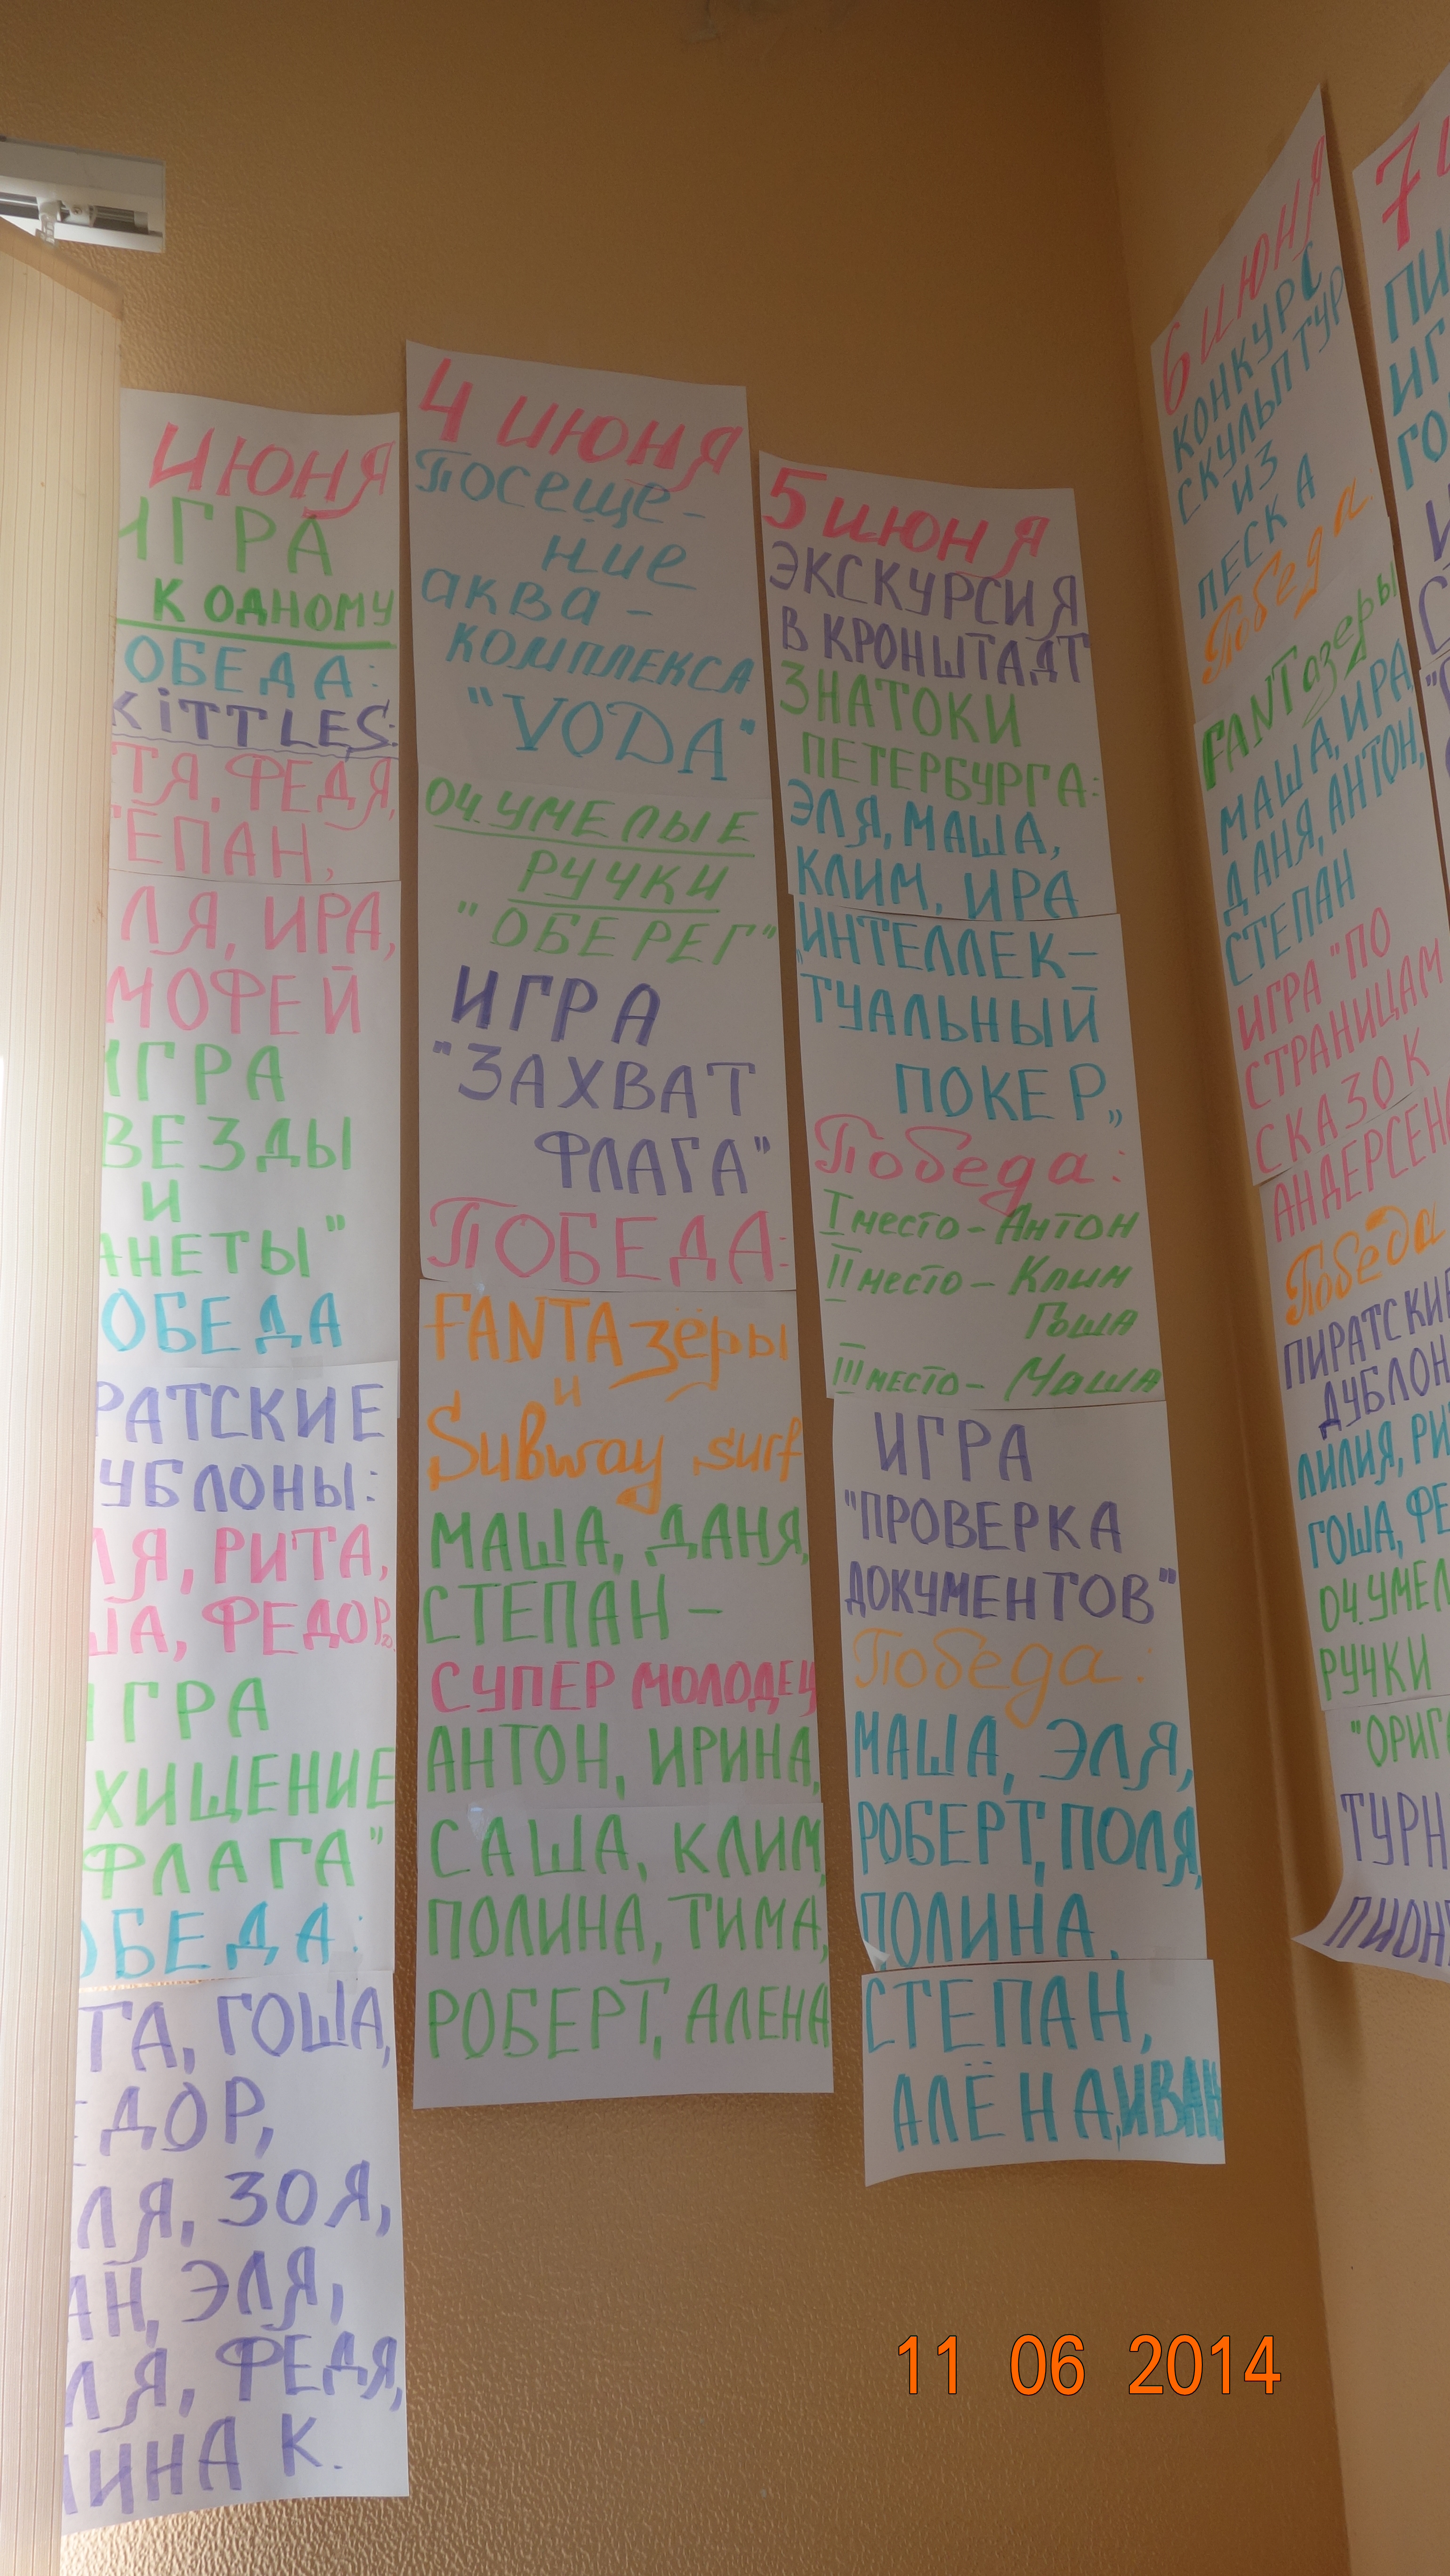 ИЮНЯ
ИГРА
К ОДНОМУ
ОБЕДА:
KiTTLES:
ТЯ, ФЕДЯ,
ЕПАН,
ЛЯ, ИРА,
МОФЕЙ
ИГРА
ВЕЗДЫ
И
АНЕТЫ"
ОБЕДА
РАТСКИЕ
УБЛОНЫ:
ЛЯ, РИТА,
ША, ФЕДОР.
ИГРА
ХИЩЕНИЕ
ФЛАГА"
ОБЕДА:
ТА, ГОША,
ЕДОР,
ЛЯ, ЗОЯ,
АН, ЭЛЯ,
ЛЯ, ФЕДЯ,
ИНА К.
4 ИЮНЯ
Посеще-
ние
аква-
КОМПЛЕКСА
"VODA"
ОЧ.УМЕЛЫЕ
РУЧКИ
"ОБЕРЕГ"
ИГРА
"ЗАХВАТ
ФЛАГА"
ПОБЕДА:
FANTAзёры
и
Subway surf
МАША, ДАНЯ,
СТЕПАН-
СУПЕР МОЛОДЕЦ
АНТОН, ИРИНА,
САША, КЛИМ,
ПОЛИНА, ТИМА,
РОБЕРТ, АЛЕНА
5 ИЮНЯ
ЭКСКУРСИЯ
В КРОНШТАДТ
ЗНАТОКИ
ПЕТЕРБУРГА:
ЭЛЯ, МАША,
КЛИМ, ИРА
"ИНТЕЛЛЕК-
ТУАЛЬНЫЙ
ПОКЕР"
Победа:
I место- Антон
II место- Клим
Гоша
III место- Маша
ИГРА
"ПРОВЕРКА
ДОКУМЕНТОВ"
Победа:
МАША, ЭЛЯ,
РОБЕРТ, ПОЛЯ,
ПОЛИНА,
СТЕПАН,
АЛЁНА,ИВАН
6 ИЮНЯ
КОНКУРС
СКУЛЬПТУР
ИЗ
ПЕСКА
Победа
FANTазёры
МАША, ИРА,
ДАНЯ, АНТОН,
СТЕПАН
ИГРА "ПО
СТРАНИЦАМ
СКАЗОК
АНДЕРСЕН
Победа
ПИРАТСКИЕ
ДУБЛОН
ЛИЛИЯ, РИ
ГОША, ФЕ
ОЧ.УМЕЛ
РУЧКИ
"ОРИГ
ТУРН
ПИОН
7
ПИ
ИГ
ГО
11 06 2014